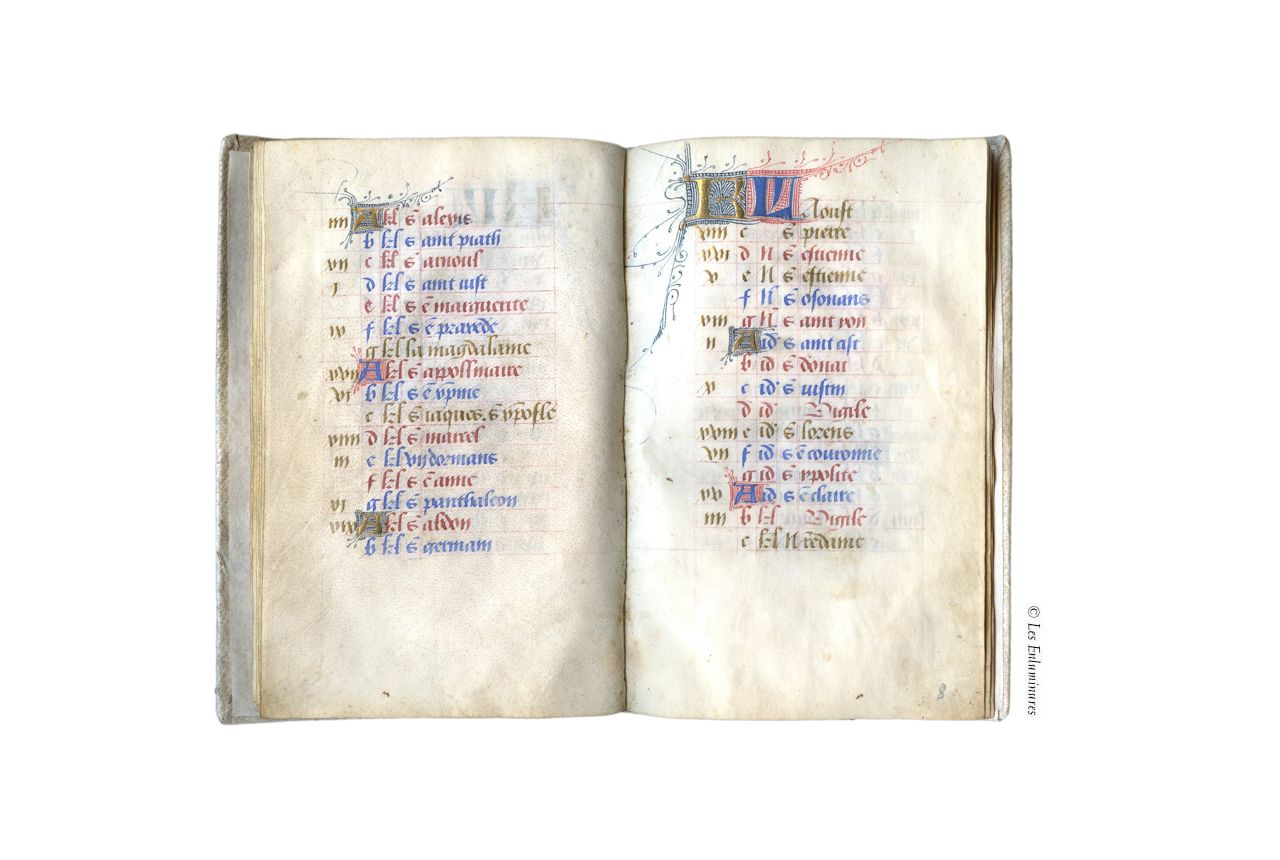 iiii A kl s alexis
b kl s amt piath
vii c kl s arnoul
j d kl s amt iust
e kl s e marguerite
ix f kl s e praxede
g kl la magdalaine
xvii A kl s appollinaire
vi b kl s e xpine
c kl s iaques. s xpofle
xiiii d kl s marcel
iii e kl vii dormans
f kl s e anne
xi g kl s panthaleon
xix A kl s abdon
b kl s germain
KL Aoust
viii c s pierre
xvi d N s estienne
v e N s estienne
f N s osouans
xiii g N s amt yon
ii A id s amt sixt
b id s donat
x c id s iustin
d id Vigile
xviii e id s lorens
vii f id s e couronne
g id s ypolite
xv A id s e claire
iiii b kl Vigile
c kl N redame
8
© Les Enluminures